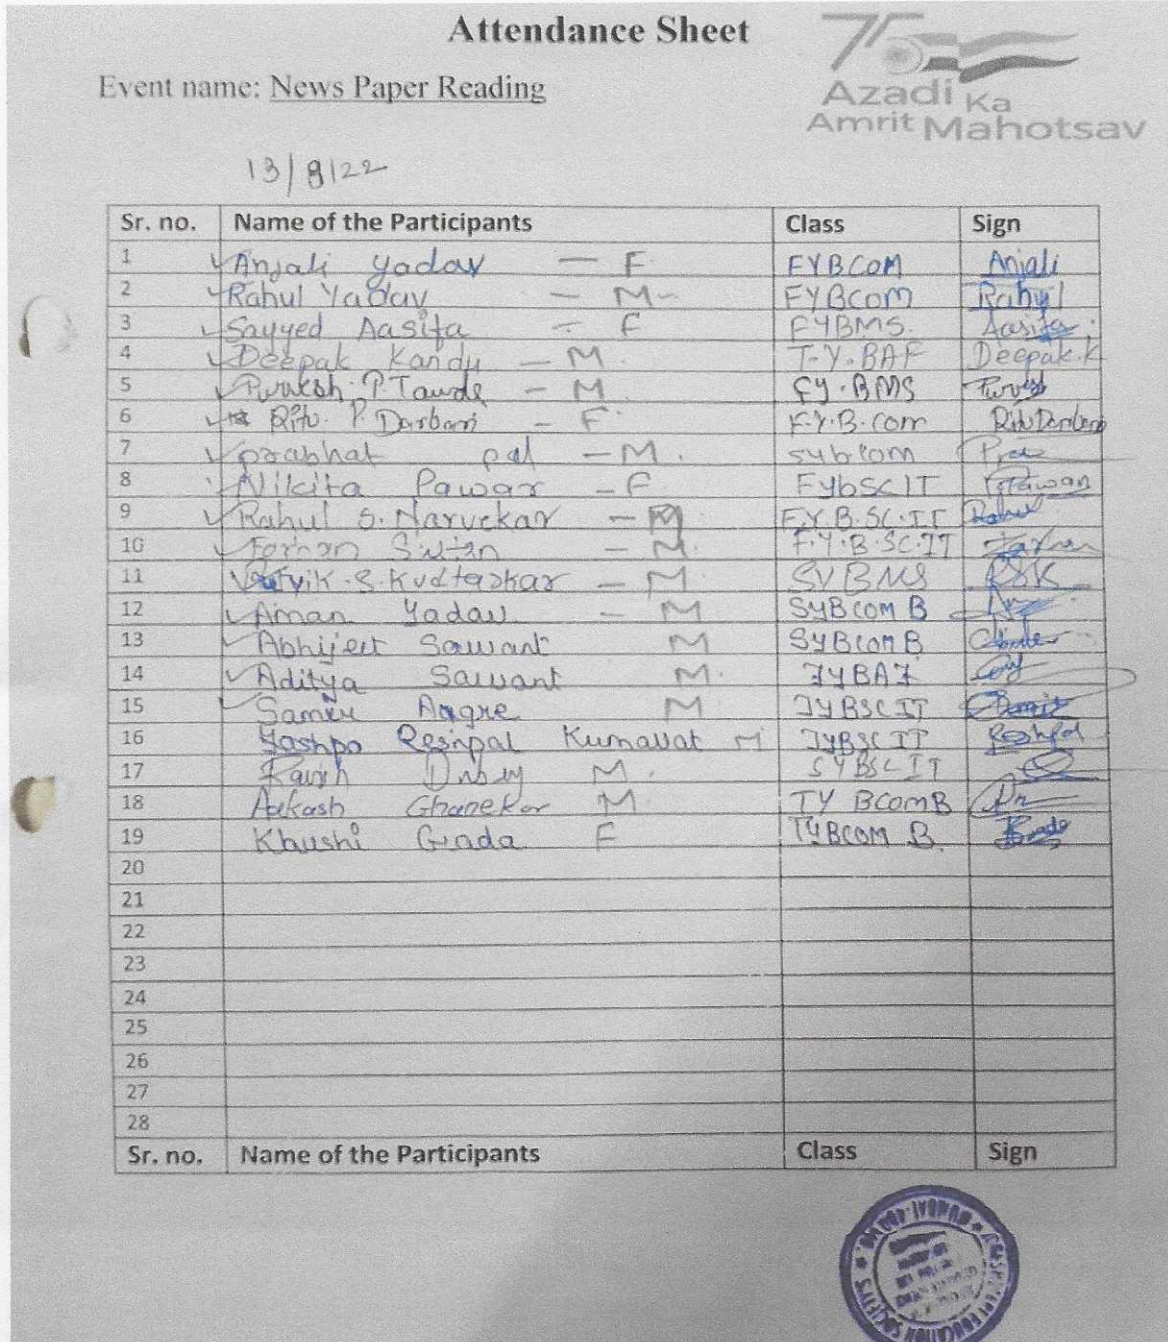 Attendance Sheet
75
Azadi Ka
Amrit Mahotsav
Event name: News Paper Reading
13/8/22
Sr. no. Name of the Participants Class Sign
1 Anjali Yadav — F FYBCOM Anjali
2 Rahul Yadav — M FYBCOM Rahul
3 Sayyed Aasifa — F FYBMS. Aasifa
4 Deepak Kandu — M T.Y.BAF Deepak.K
5 P. Tawde — M FY.BMS
6 Ritu. P. Darbari — F F.Y.B.com
7 prabhat pal — M. sybcom
8 Nikita Pawar — F FYbSCIT
9 Rahul S. Narvekar — M F.Y.B.SC.IT Rahul
10 — M. F.Y.B.SC.IT Farhan
11 — M SYBMS RSK
12 Aman Yadav — M SYBCOM B
13 Abhijeet Sawant M SYBCOM B
14 Aditya Sawant M. TYBAF
15 Samir Angre M TYBSCIT
16 Kumavat M TYBSCIT
17 M. SYBSCIT
18 Aakash Ghanekar M TY BComB
19 Khushi Gada F TYBCOM B.
20
21
22
23
24
25
26
27
28
Sr. no. Name of the Participants Class Sign